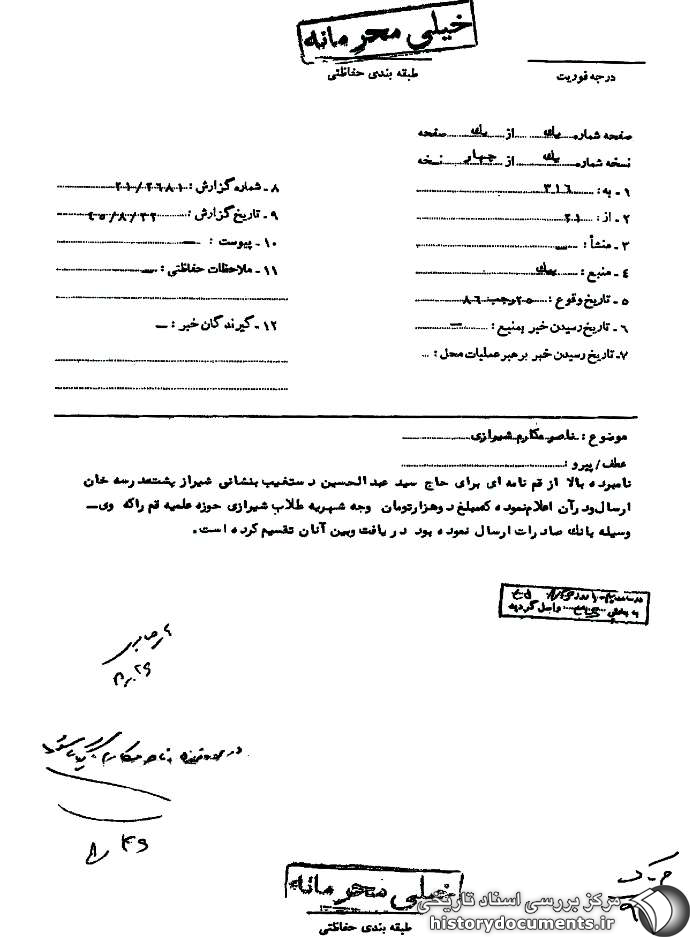 خیلی محرمانه
طبقه بندی حفاظتی
درجه فوریت
صفحه شماره یک از یک صفحه
نسخه شماره یک از چهار نسخه
۱ - به: ۳۱۶
۲ - از: ۲۱
۳ - منشأ: —
۴ - منبع: یک
۵ - تاریخ وقوع: ۲۵ رجب ۸۶
۶ - تاریخ رسیدن خبر بمنبع: —
۷- تاریخ رسیدن خبر برهبر عملیات محل:
۸ - شماره گزارش: ۲۱/۲۶۸۱
۹ - تاریخ گزارش: ۴۵/۸/۲۲
۱۰ - پیوست: —
۱۱ - ملاحظات حفاظتی: —
۱۲ - گیرندگان خبر: —
موضوع: ناصر مکارم شیرازی
عطف/ پیرو:
نامبرده بالا از قم نامه ای برای حاج سید عبدالحسین دستغیب بنشانی شیراز پشتمدرسه خان
ارسال ودرآن اعلام نموده کمبلغ دوهزارتومان وجه شهریه طلاب شیرازی حوزه علمیه قم راکه وی
وسیله بانک صادرات ارسال نموده بود دریافت وبین آنان تقسیم کرده است.
واصل گردید
خیلی محرمانه
طبقه بندی حفاظتی
مرکز بررسی اسناد تاریخی
historydocuments.ir